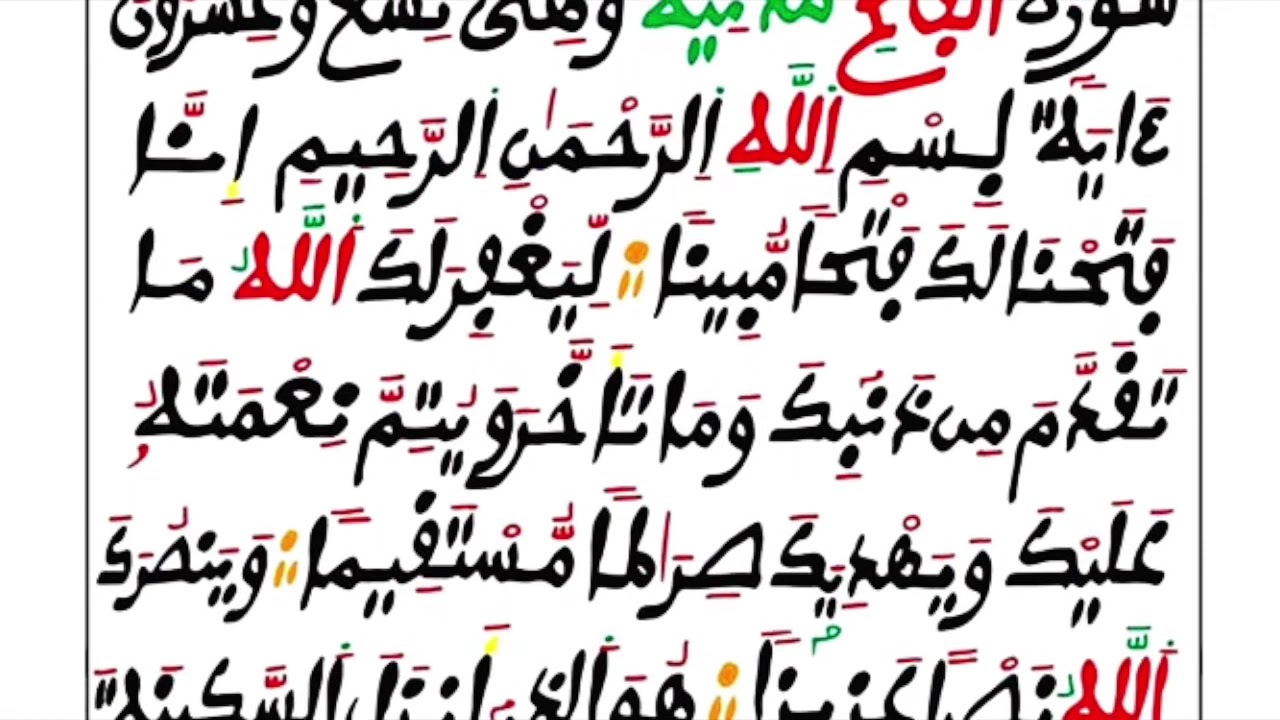 سورة الفاتح مدنية وهي تسع وعشرون
ءاية بِسْمِ اِ۬للَّهِ اِ۬لرَّحْمَٰنِ اِ۬لرَّحِيمِ اِنَّا
فَتَحْنَا لَكَ فَتْحاً مُّبِيناً لِّيَغْفِرَ لَكَ اَ۬للَّهُ مَا
تَقَدَّمَ مِن ذَنۢبِكَ وَمَا تَأَخَّرَ وَيُتِمَّ نِعْمَتَهُۥ
عَلَيْكَ وَيَهْدِيَكَ صِرَاطاً مُّسْتَقِيماً وَيَنصُرَكَ
اَ۬للَّهُ نَصْراً عَزِيزاً هُوَ اَ۬لذِے أَنزَلَ اَ۬لسَّكِينَةَ